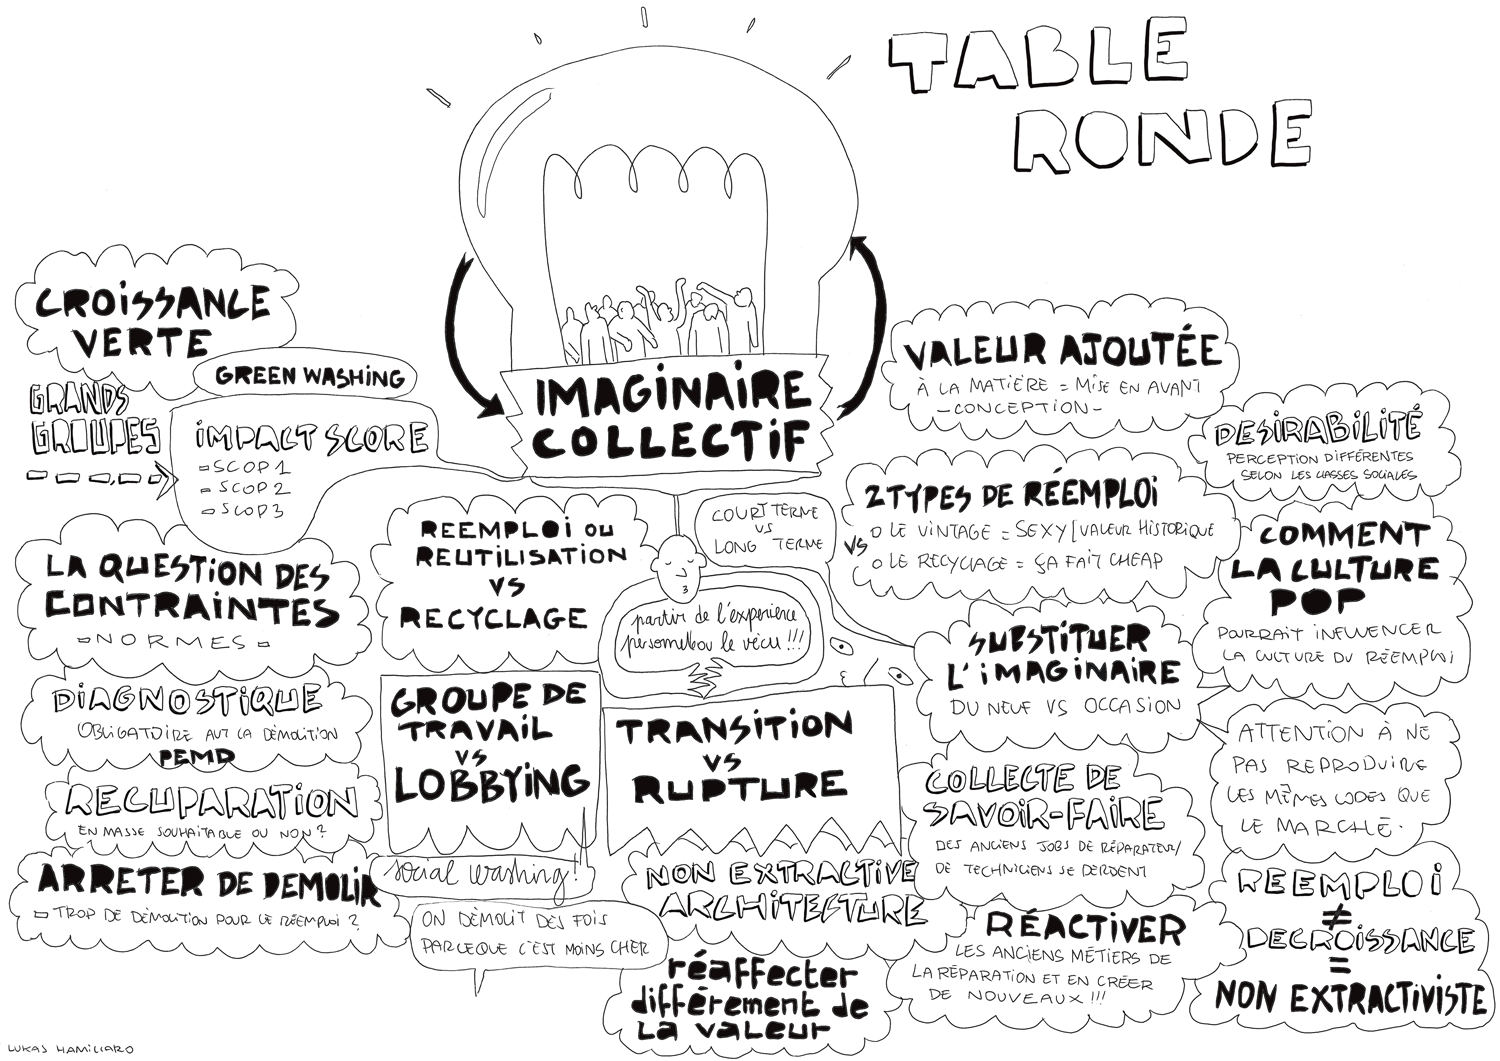 TABLE
RONDE
IMAGINAIRE
COLLECTIF
CROISSANCE
VERTE
GREEN WASHING
GRANDS
GROUPES
IMPACT SCORE
SCOP 1
SCOP 2
SCOP 3
LA QUESTION DES
CONTRAINTES
NORMES
DIAGNOSTIQUE
OBLIGATOIRE AVT LA DÉMOLITION
PEMD
RECUPARATION
EN MASSE SOUHAITABLE OU NON ?
ARRETER DE DEMOLIR
TROP DE DÉMOLITION POUR LE RÉEMPLOI ?
REEMPLOI OU
REUTILISATION
VS
RECYCLAGE
GROUPE DE
TRAVAIL
VS
LOBBYING
social washing !
ON DÉMOLIT DES FOIS
PARCEQUE C'EST MOINS CHER
COURT TERME
VS
LONG TERME
partir de l'experience
personnel ou le vécu !!!
TRANSITION
VS
RUPTURE
NON EXTRACTIVE
ARCHITECTURE
réaffecter
différement de
La valeur
VALEUR AJOUTÉE
À LA MATIÈRE = MISE EN AVANT
-CONCEPTION-
2 TYPES DE RÉEMPLOI
VS
O LE VINTAGE = SEXY | VALEUR HISTORIQUE
O LE RECYCLAGE = ÇA FAIT CHEAP
SUBSTITUER
L'IMAGINAIRE
DU NEUF VS OCCASION
COLLECTE DE
SAVOIR-FAIRE
DES ANCIENS JOBS DE RÉPARATEUR/
DE TECHNICIENS SE PERDENT
RÉACTIVER
LES ANCIENS MÉTIERS DE
LA RÉPARATION ET EN CRÉER
DE NOUVEAUX !!!
DESIRABILITÉ
PERCEPTION DIFFÉRENTES
SELON LES CLASSES SOCIALES
COMMENT
LA CULTURE
POP
POURRAIT INFLUENCER
LA CULTURE DU RÉEMPLOI
ATTENTION À NE
PAS REPRODUIRE
LES MÊMES CODES QUE
LE MARCHÉ.
REEMPLOI
≠
DECROISSANCE
=
NON EXTRACTIVISTE
LUKAS HAMILCARO